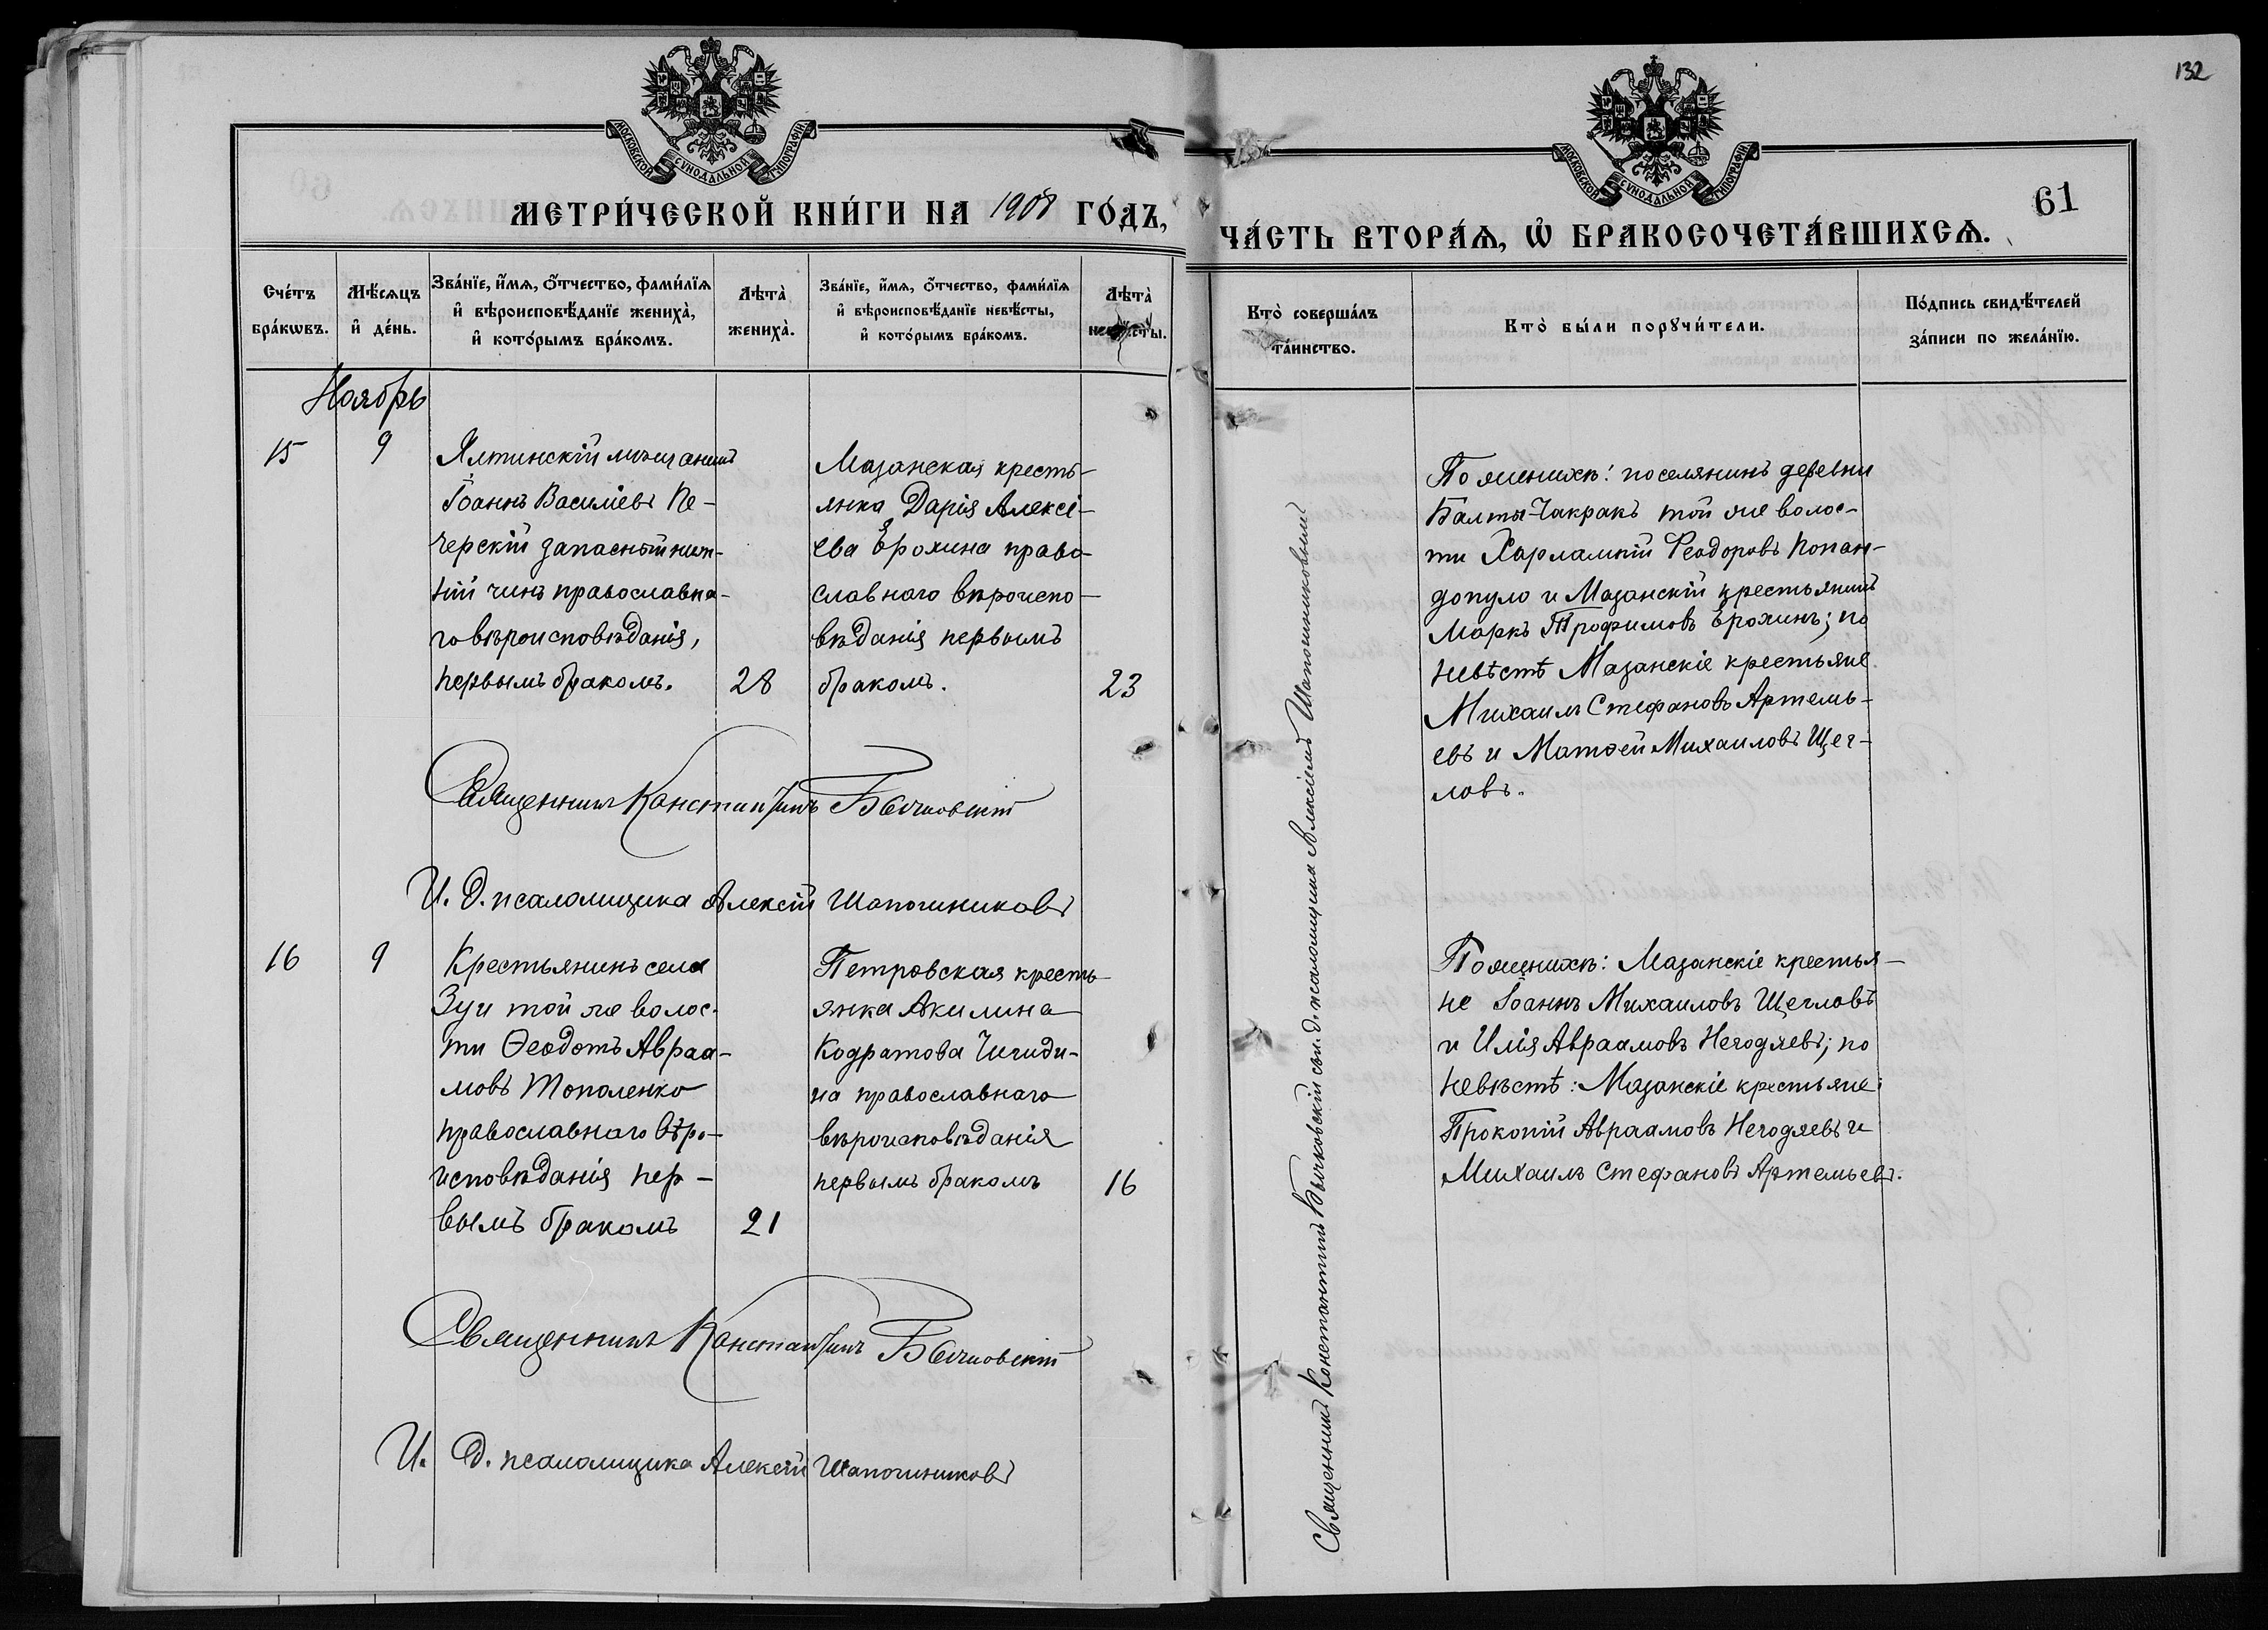 132
МОСКОВСКОЙ СѴНОДАЛЬНОЙ ТИПОГРАФІИ
МОСКОВСКОЙ СѴНОДАЛЬНОЙ ТИПОГРАФІИ
61
МЕТРИ́ЧЕСКОЙ КНИ́ГИ НА 1908 ГО́ДЪ,
ЧА́СТЬ ВТОРА́Ѧ, Ѡ҆ БРАКОСОЧЕТА́ВШИХСѦ.
Сче́тъ
бра́кѡвъ.
Мѣ́сѧцъ
и҆ де́нь.
Зва́нїе, и҆́мѧ, ѻ҆́тчество, фами́лїѧ
и҆ вѣроисповѣ́данїе жениха̀,
и҆ кото́рымъ бра́комъ.
Лѣта̀
жениха̀.
Зва́нїе, и҆́мѧ, ѻ҆́тчество, фами́лїѧ
и҆ вѣроисповѣ́данїе невѣ́сты,
и҆ кото́рымъ бра́комъ.
Лѣта̀
невѣ́сты.
Кто̀ соверша́лъ
та́инство.
Кто̀ бы́ли порꙋчи́тели.
По́дпись свидѣ́телей
за́писи по жела́нїю.
Ноябрь
15
9
Ялтинскій мѣщанинъ
Іоаннъ Василіевъ Пе-
черскій запасный ниж-
ній чинъ православна-
го вѣроисповѣданія,
первымъ бракомъ.
28
Мазанская кресть-
янка Дарія Алексі-
ева Ерохина право-
славнаго вѣроиспо-
вѣданія первымъ
бракомъ.
23
По женихѣ: поселянинъ деревни
Балты-Чакракъ той же волос-
ти Харлампій Феодоровъ Попан-
допуло и Мазанскій крестьянинъ
Маркъ Трофимовъ Ерохинъ; по
невѣстѣ Мазанскіе крестьяне
Михаилъ Стефановъ Артемь-
евъ и Матѳей Михаиловъ Щег-
ловъ.
Священникъ Константинъ Бычковскій
И. д. псаломщика Алексій Шапошниковъ
16
9
Крестьянинъ села
Зуи той же волос-
ти Ѳеодотъ Авраа-
мовъ Тополенко
православнаго вѣро-
исповѣданія пер-
вымъ бракомъ
21
Петровская кресть-
янка Акилина
Кодратова Чигиди-
на православнаго
вѣроисповѣданія
первымъ бракомъ
16
По женихѣ: Мазанскіе крестья-
не Іоаннъ Михаиловъ Щегловъ
и Илія Авраамовъ Негодяевъ; по
невѣстѣ: Мазанскіе крестьяне:
Прокопій Авраамовъ Негодяевъ и
Михаилъ Стефановъ Артемьевъ.
Священникъ Константинъ Бычковскій
И. д. псаломщика Алексій Шапошниковъ
Священникъ Константинъ Бычковскій съ и. д. псаломщика Алексіемъ Шапошниковымъ